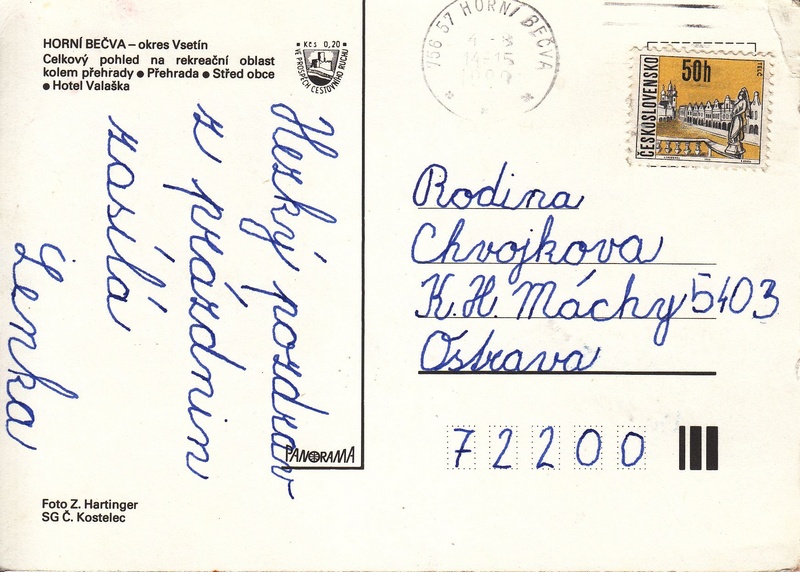 HORNÍ BEČVA – okres Vsetín
Celkový pohled na rekreační oblast
kolem přehrady ● Přehrada ● Střed obce
● Hotel Valaška
Kčs 0,20
VE PROSPĚCH CESTOVNÍHO RUCHU
756 57 HORNÍ BEČVA
4 -8
14-15
ČESKOSLOVENSKO
50h
TELČ
Hezký pozdrav
z prázdnin
zasílá
Lenka
Rodina
Chvojkova
K. H. Máchy 5403
Ostrava
72200
PANORAMA
Foto Z. Hartinger
SG Č. Kostelec